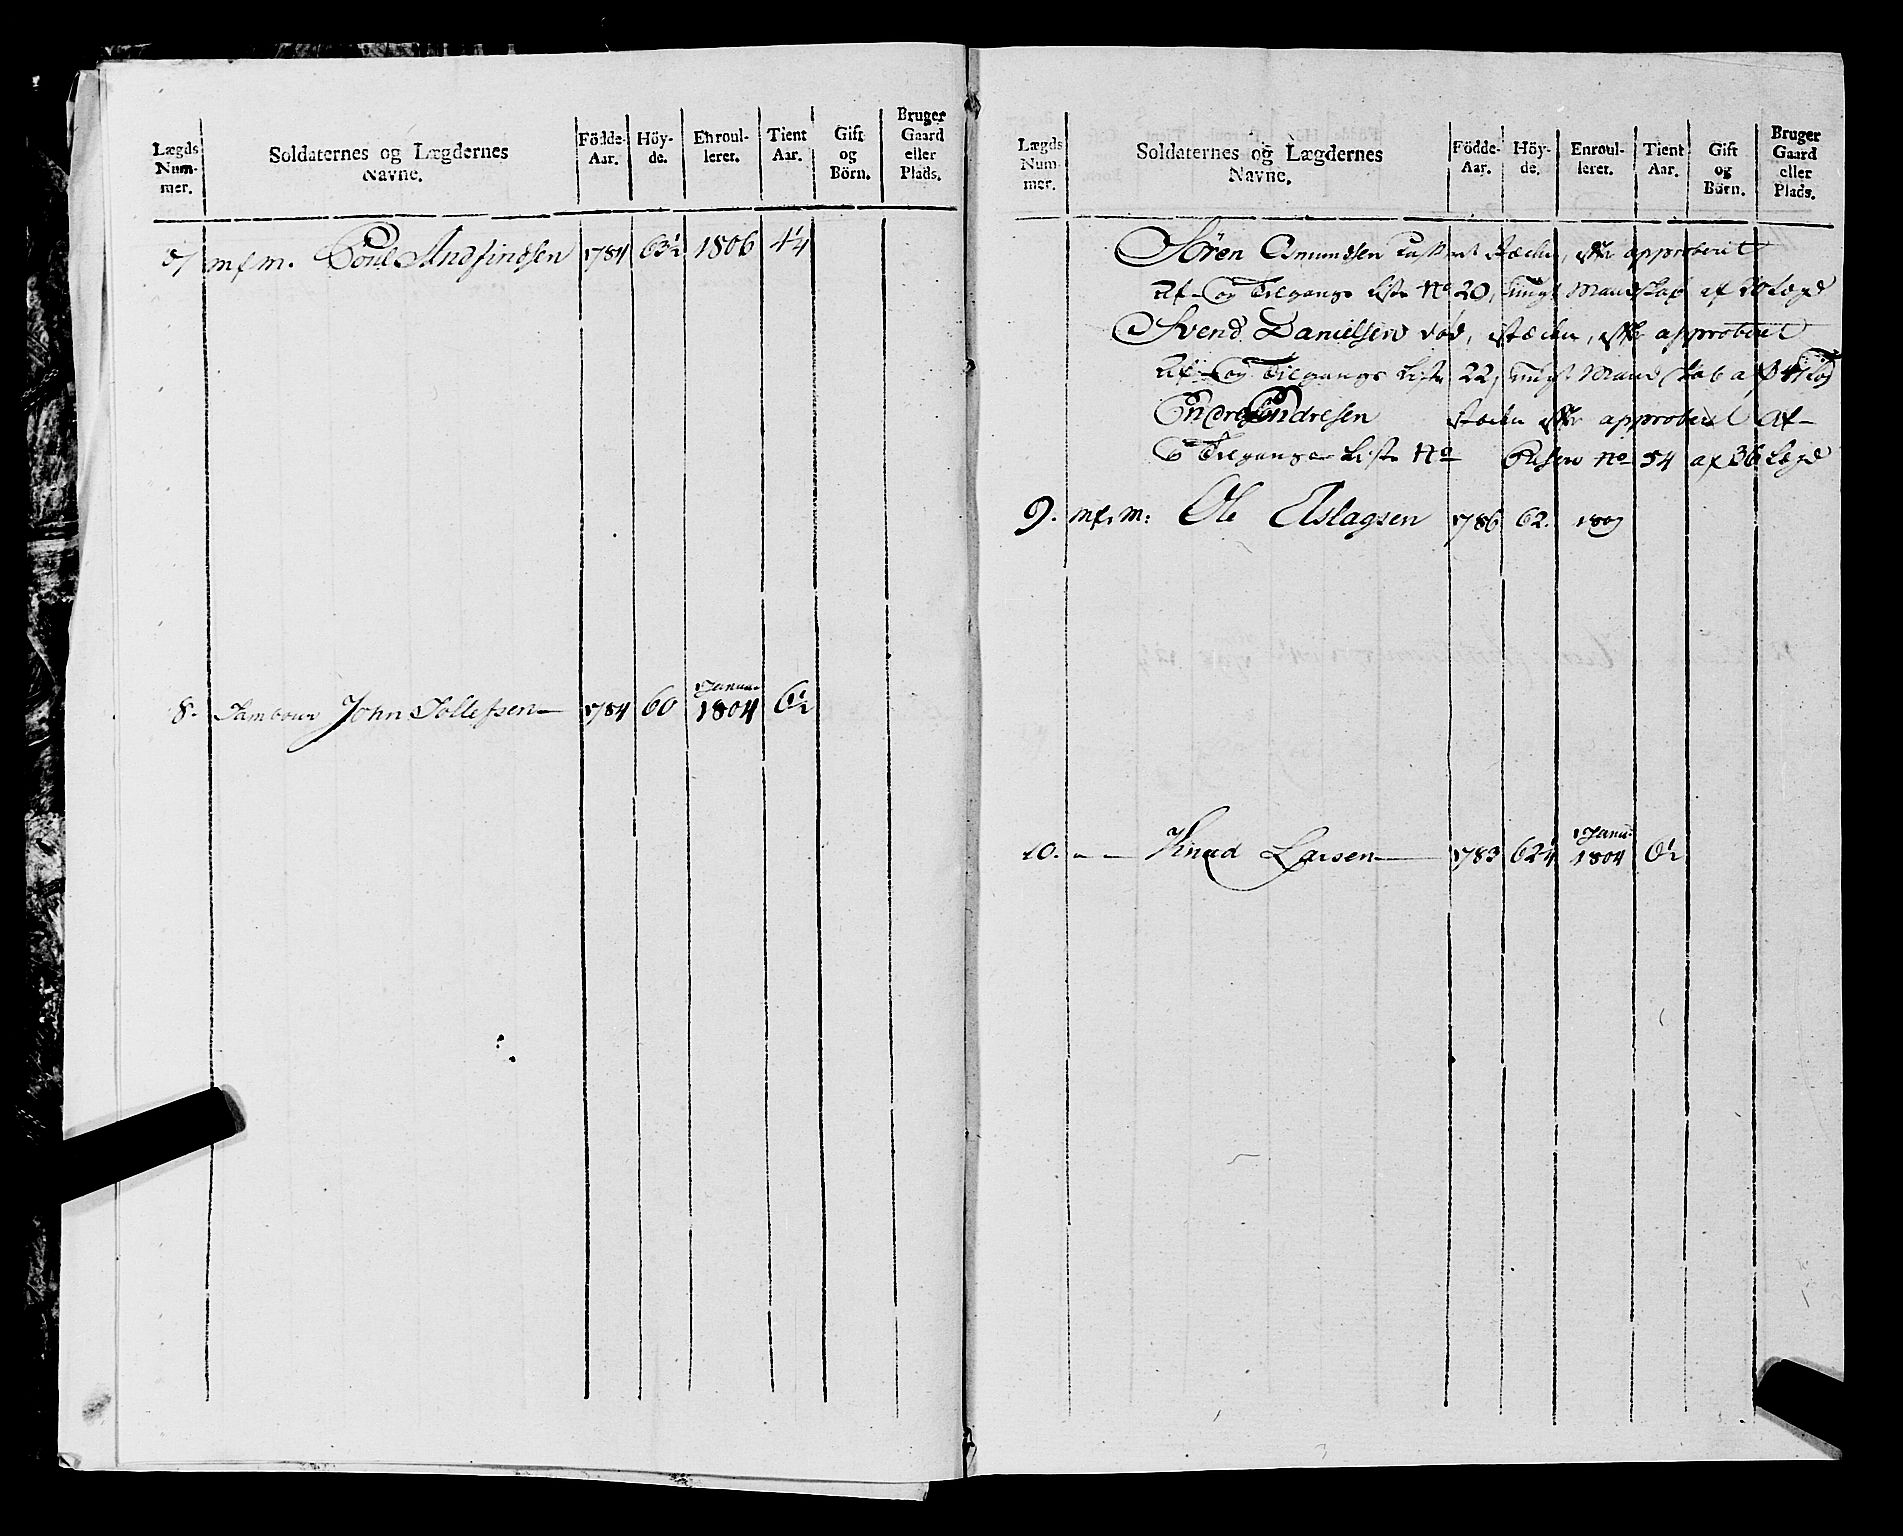 Lægds Num- mer.
Soldaternes og Lægdernes Navne.
Födde- Aar.
Höy- de.
Enroul- leret.
Tient Aar.
Gift og Börn.
Bruger Gaard eller Plads.
7 m f m. Poul Andfindsen 1784 63½ 1806 4¼
8. Tambour John Tollefsen 1784 60 1 Janu. 1804 6½
Lægds Num- mer.
Soldaternes og Lægdernes Navne.
Födde- Aar.
Höy- de.
Enroul- leret.
Tient Aar.
Gift og Börn.
Bruger Gaard eller Plads.
Sören Omundsen approberet
Af- og Tilgangs Liste No 20, ungt Mandskab af 20 Lægd
Svend Danielsen död, approberet
Af- og Tilgangs Liste 22, ungt Mandskab af
Endre Endresen approberet Af-
Tilgangs Liste No No 54 af 36 Lægd
9. m f. m: Ole Aslagsen 1786 62. 1807
10. Knud Larsen 1783 62¼ 1 Janu: 1804 6½